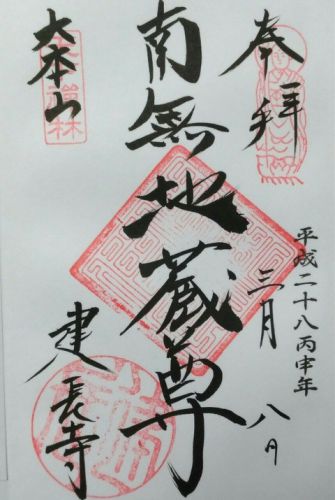 奉拝
平成二十八丙申年
三月八日
南無地蔵尊
大本山
建長寺